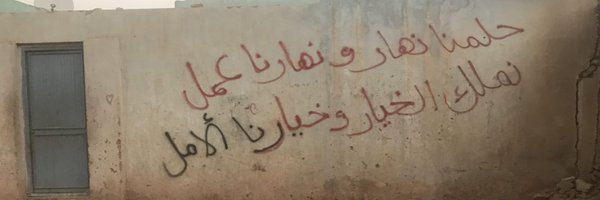 حلمنا نهار و نهارنا عمل
نملك الخيار و خيارنا الأمل